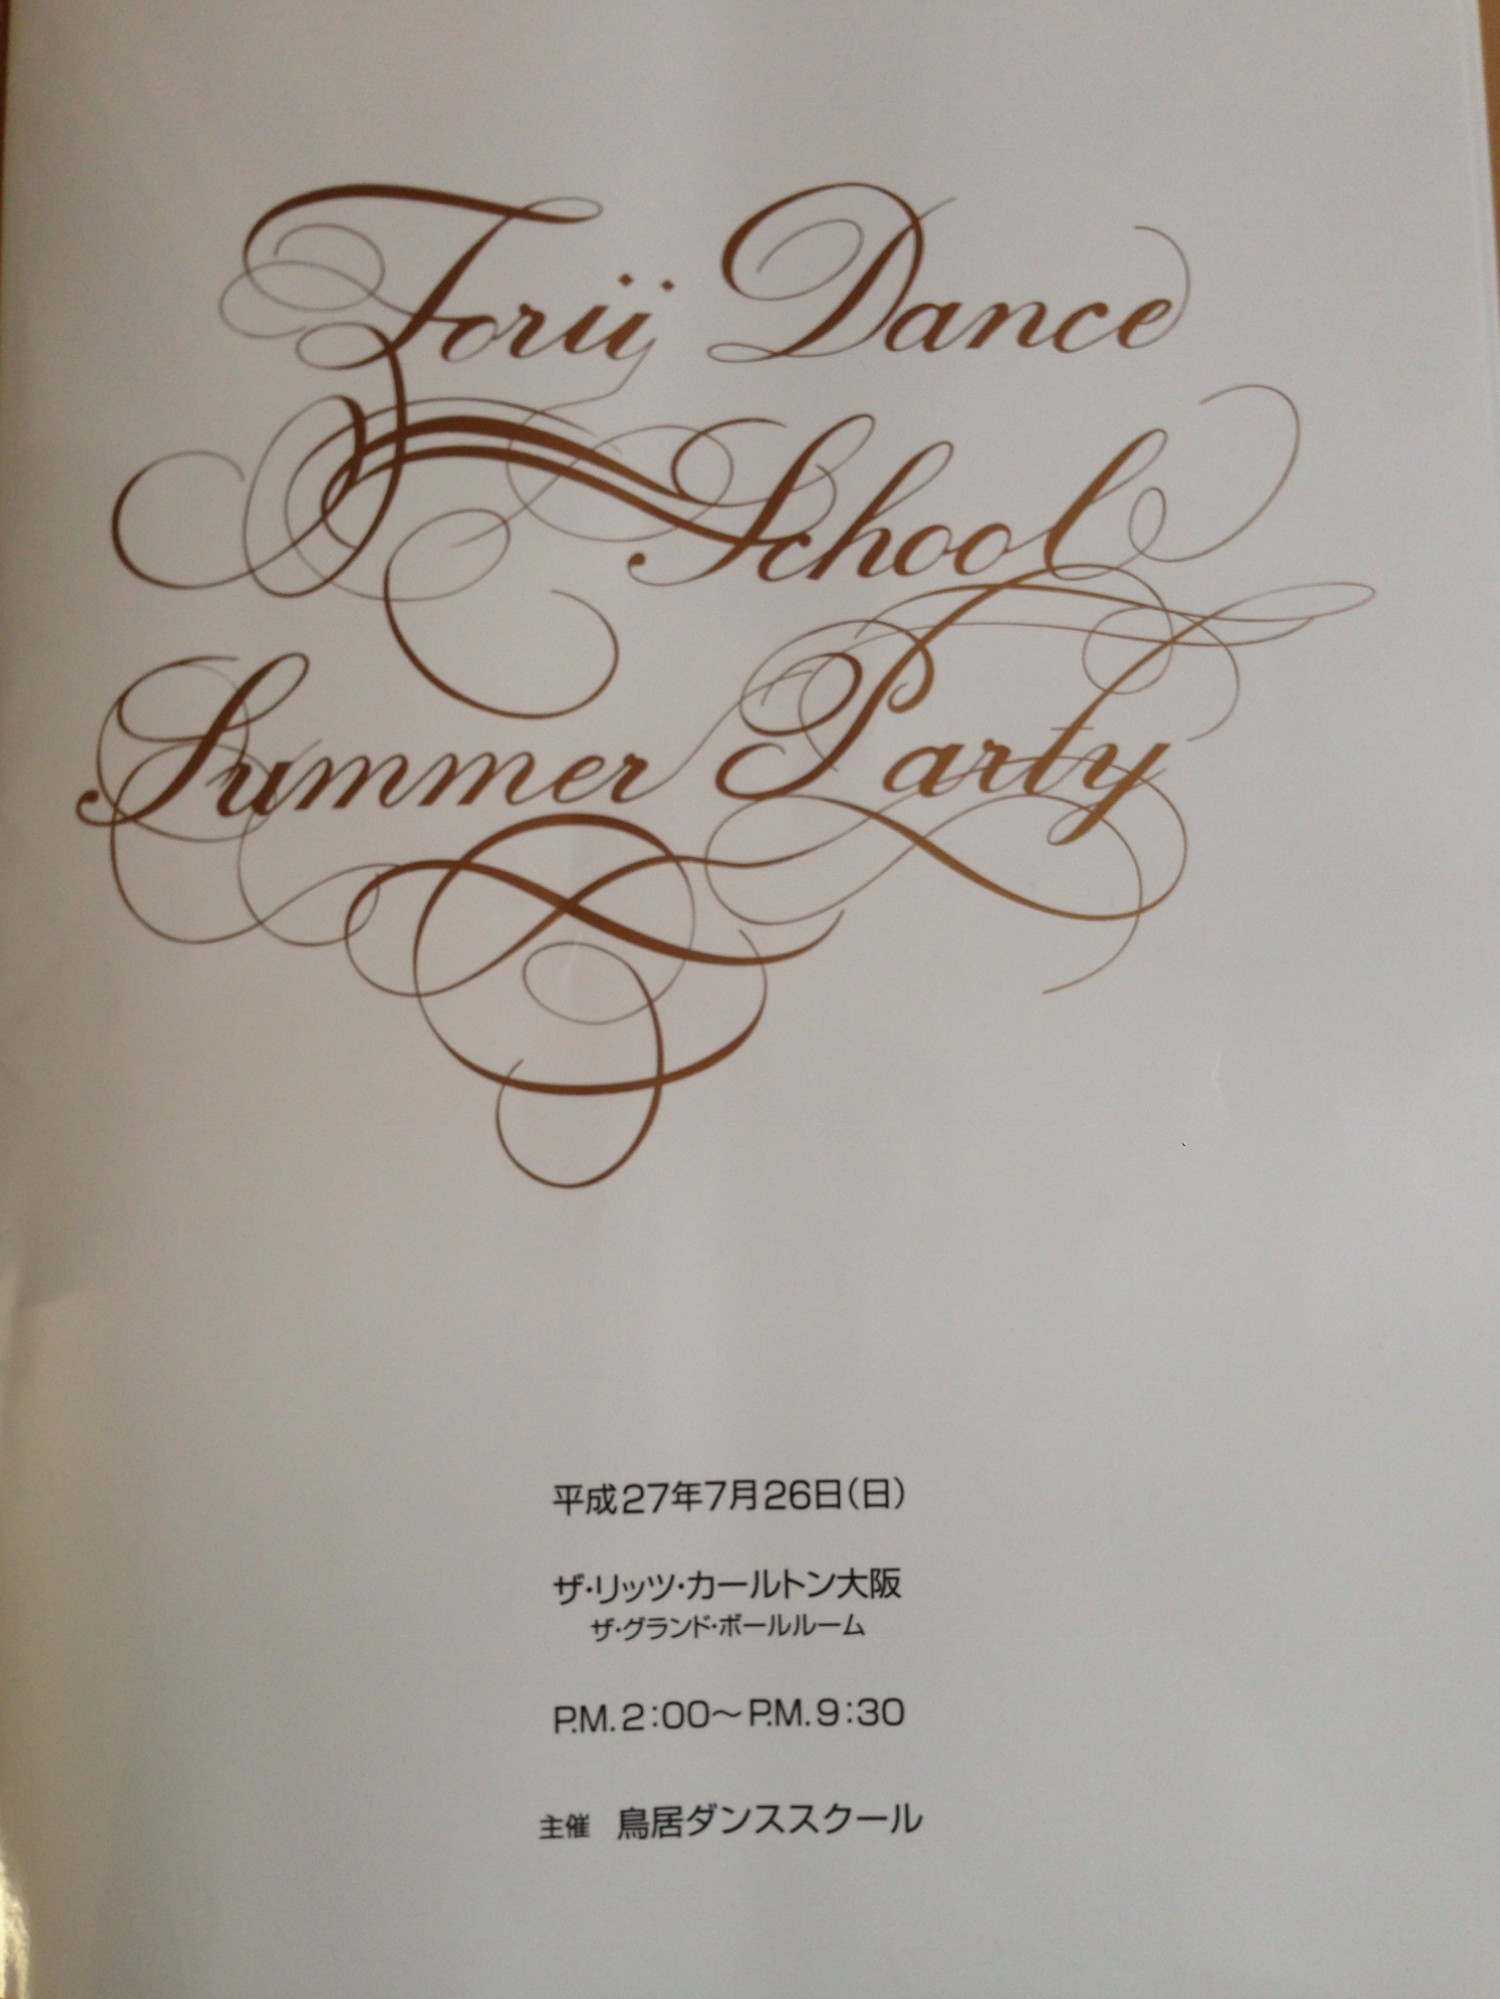 Torii Dance
School
Summer Party
平成27年7月26日(日)
ザ・リッツ・カールトン大阪
ザ・グランド・ボールルーム
P.M.2:00〜P.M.9:30
主催 鳥居ダンススクール